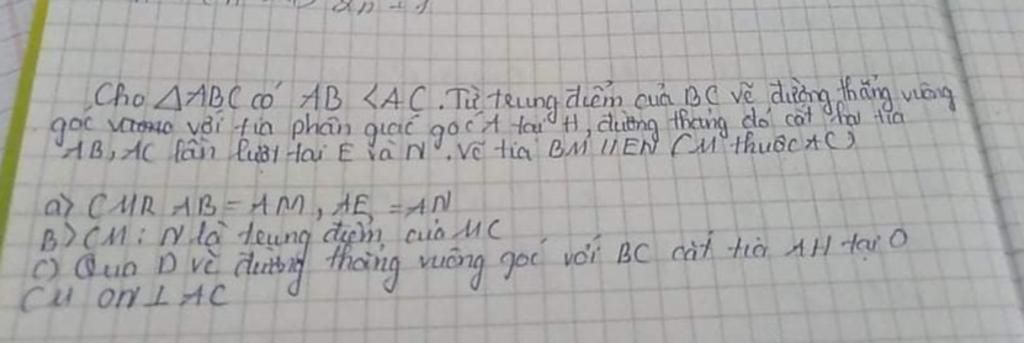 2n + 1
Cho △ABC có AB < AC. Từ trung điểm của BC vẽ đường thẳng vuông
góc với tia phân giác góc A tại H, đường thẳng đó cắt hai tia
AB, AC lần lượt tại E và N. Vẽ tia BM // EN (M thuộc AC)
a) CMR AB = AM, AE = AN
B) CM: N là trung điểm của MC
c) Qua D vẽ đường thẳng vuông góc với BC cắt tia AH tại O
CM ON ⊥ AC